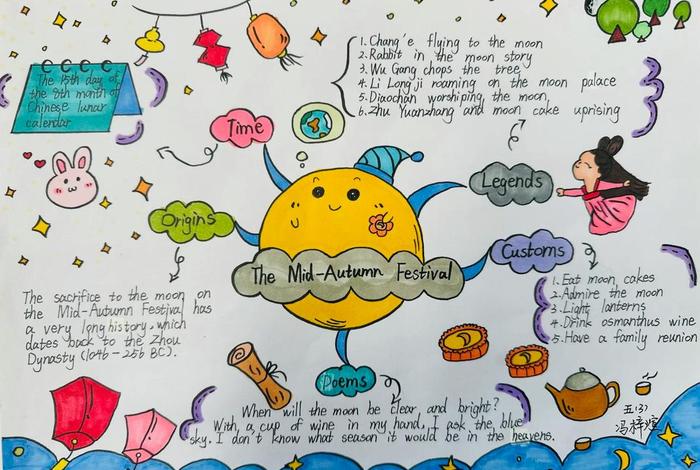 The 15th day of
the 8th month of
Chinese lunar
calendar
Time
1. Chang'e flying to the moon
2. Rabbit in the moon story
3. Wu Gang chops the tree
4. Li Longji roaming on the moon palace
5. Diaochan worshiping the moon
6. Zhu Yuanzhang and moon cake uprising
Legends
Origins
The sacrifice to the moon on
the Mid-Autumn Festival has
a very long history, which
dates back to the Zhou
Dynasty (1046-256 BC).
The Mid-Autumn Festival
Customs
1. Eat moon cakes
2. Admire the moon
3. Light lanterns
4. Drink osmanthus wine
5. Have a family reunion
Poems
When will the moon be clear and bright?
With a cup of wine in my hand, I ask the blue
sky. I don't know what season it would be in the heavens.
五(3)
冯梓煊